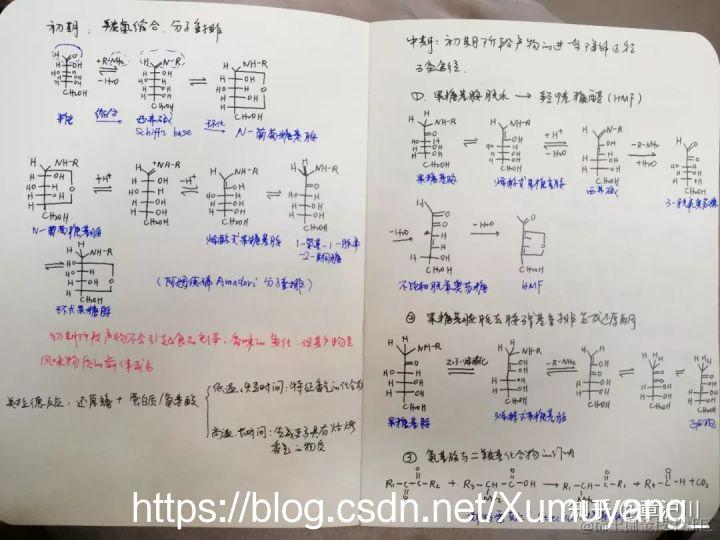 初期：羰氨缩合、分子重排
+R-NH₂
-H₂O
N-R
NH-R
CH₂OH
糖
缩合
西弗碱
Schiff's base
环化
N-葡萄糖基胺
H NH-R
+H⁺
H ⁺NH-R
-H⁺
H NH-R
H NH-R
CH₂OH
N-葡萄糖基胺
烯醇式果糖基胺
1-氨基-1-脱氧
-2-酮糖
H NH-R
CH₂OH
环式果糖胺
(阿姆德瑞 Amadori 分子重排)
初期阶段产物不会引起食品色泽、香味的变化，但其产物是
风味物质的前体成分
美拉德反应：还原糖 + 蛋白质/氨基酸
低温、短时间：特征香气的化合物
高温、长时间：生成更多具有焙烤
香气的物质
中期：初期阶段产物的进一步降解过程
3条途径.
①. 果糖基胺脱水 → 羟甲基糠醛 (HMF)
H NH-R
+H⁺
-H₂O
N-R
-R-NH₂
+H₂O
CH₂OH
果糖基胺
烯醇式果糖基胺
西弗碱
3-脱氧奥苏糖
-H₂O
-H₂O
CH₂OH
不饱和脱氧奥苏糖
HMF
② 果糖基胺脱去胺残基重排生成还原酮
NH-R
2,3-烯醇化
NH-R
-R-NH₂
CH₂OH
果糖基胺
烯醇式果糖基胺
③ 氨基酸与二羰基化合物的作用
R₁-C-C-R₂ + R₃-CH-C-OH → R₁-CH-C-R₂ + R₃-C-H + CO₂
https://blog.csdn.net/Xumuyang_
知乎 @黄河川